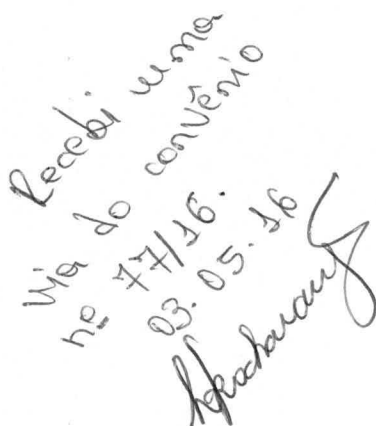 Recebi uma
via do convênio
nº 77/16.
03.05.16